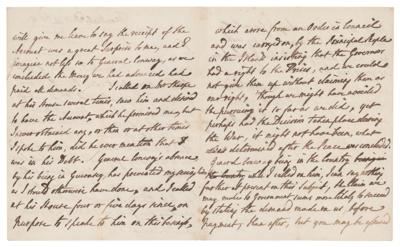 will give me leave to say the receipt of the
Account was a great Surprise to me, and I
imagine not less so to General Conway, as we
concluded the Money we had advanced had
paid all demands. I called on Mr
at his House several times, saw him and desired
to have the Account, which he promised me, but
I never obtained any, or then or at other times
I spoke to him, did he ever mention that I
was in his Debt. General Conway's absence
by his being in Guernsey, has prevented my seeing him
as I should otherwise have done, and I called
at his House four or five days since, on
purpose to speak to him on this Account,
which arose from an Order in Council
and was carried on, by the Principal People
in the Island insisting that the Governor
had a right to the Prizes, and we could
not give them up without claiming them as
our right, though we might have avoided
the pursuing it so far as we did, yet
perhaps had the Decision taken place during
the War, it might not have been, what
was determined after the Peace was concluded.
General Conway being in the Country
when I called on him, I can say nothing
further at present on this Subject, the Claim we
may make to Government seems more likely to succeed
by stating the demand made on us, before
payment, than after, but you may be assured